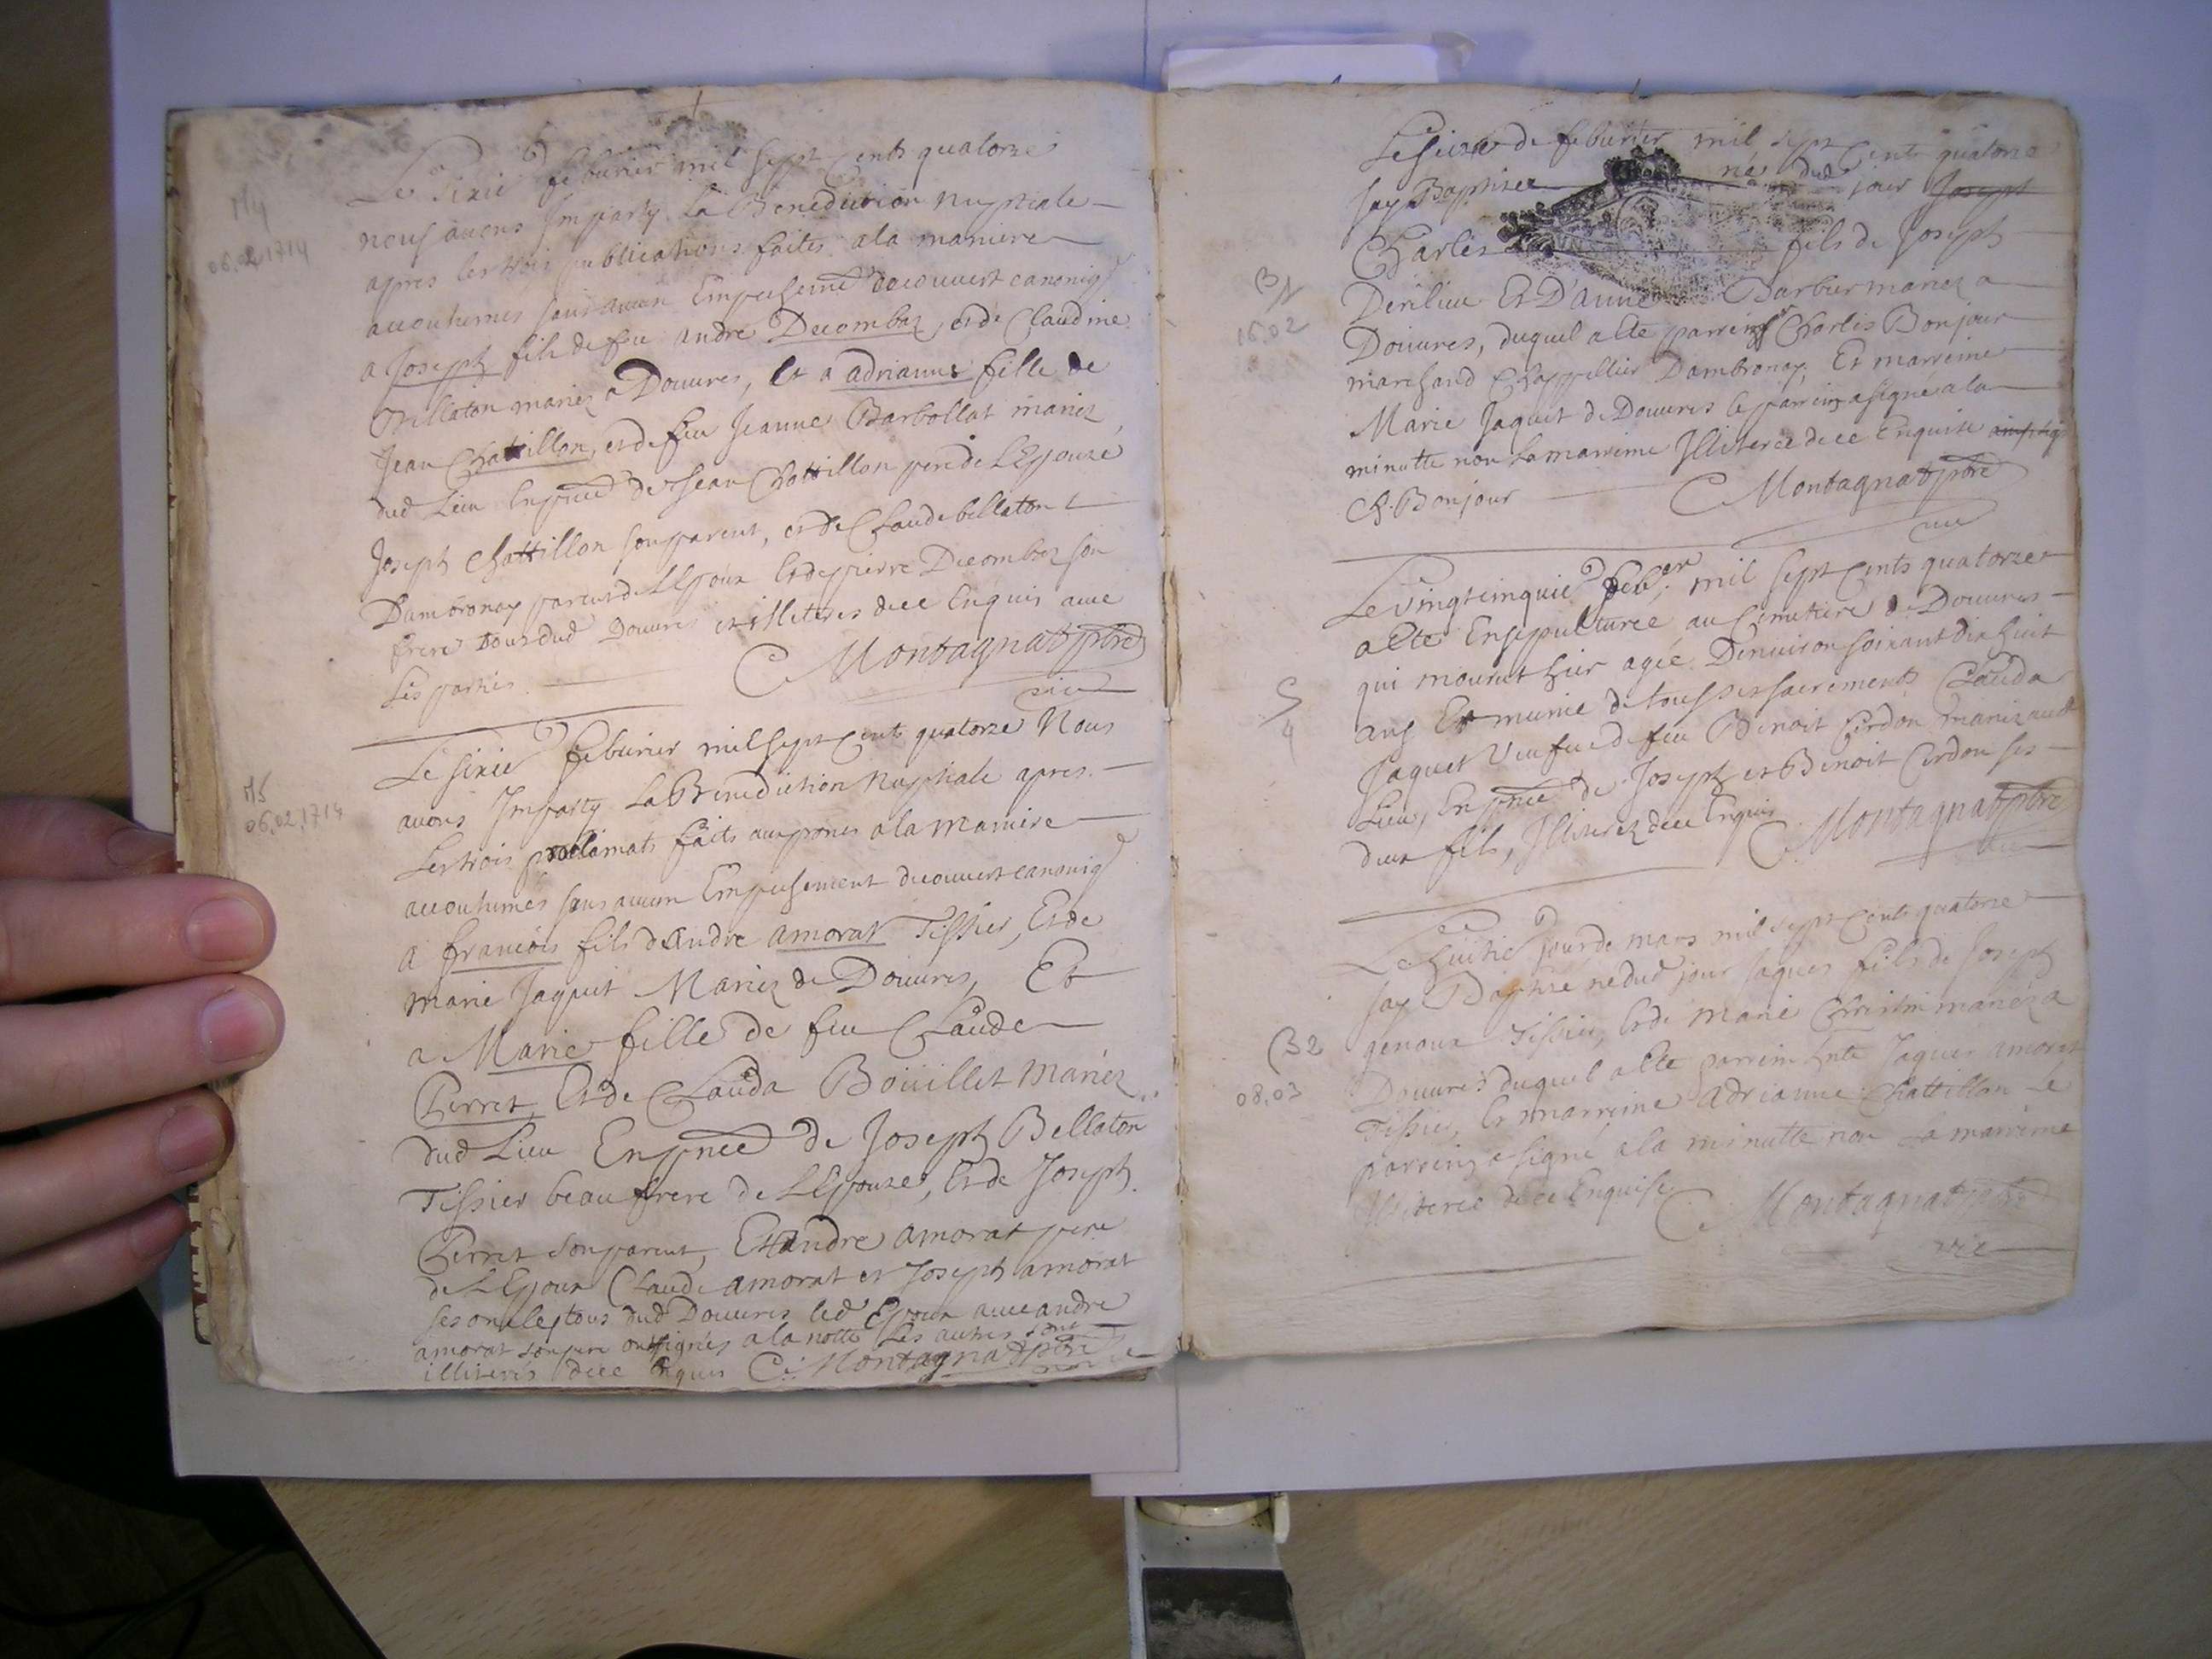 Le sixie feburier mil sept cents quatorze
nous avons Imparty La Benediction nuptiale
apres les trois publications faites ala maniere
accoutumes sans aucun Empeschemt decouvert canoniq
a Joseph fils de feu andre Decombaz, et de Claudine
Bellaton mariez a Douures, Et a adrianne fille de
Jean Chattillon, et de feu Jeanne Barbollat mariez
dud Lieu En pnce de Jean Chattillon pere de LEpouze
Joseph Chattillon son parent, et de Claude bellaton
Dambronay parent de LEpoux Et de pierre Decombaz son
frere tous dud Douures et illiteres de ce Enquis avec
Les parties.
C Montagnat ptre
vic
M4
06.02.1714
Le sixie feburier mil sept Cents quatorze Nous
avons Imparty La Benediction Nuptiale apres
Les trois proclamats faits aux prones a la maniere
accoutumés sans aucun Empeschement decouvert canoniq
a francois fils dAndre amorat Tissier, Et de
marie Jaquet Mariez de Douures, Et
a Marie fille de feu Claude
Perret, Et de Clauda Bouillet Mariez
dud Lieu En pnce de Joseph Bellaton
Tissier beau frere de LEpouze, Et de Joseph
Perret son parent, Et Andre amorat pere
de LEpoux Claude amorat et Joseph amorat
ses oncles tous dud Douures led Epoux avec andre
amorat son pere ont signés a la notte Les autres sont
illiterés de ce Enquis C. Montagnat ptre
M5
06.02.1714
Le seize de feburier mil sept Cents quatorze
Jay Baptizé né dud jour Joseph
Charles fils de Joseph
Derilieu Et D'anne Barbier mariez a
Douures, duquel a Ete parrein Charles Bonjour
marchand Chappellier Dambronay, Et marreine
Marie Jaquet de Douures le parrein a signé a la
minutte non La marreine Illiteree de ce Enquise
Ch. Bonjour C Montagnat ptre
vic
B1
16.02
Le vingtcinquie feber mil sept Cents quatorze
a Ete Ensepulturée au Cimetiere de Douures
qui mourut hier agée Denviron soixant dix huit
ans Et munie de tous ses sacrements Clauda
Jaquet Veufve de feu Benoit Cerdon mariez aud
Lieu, En pnce de Joseph et Benoit Cerdon ses
deux fils, Illiterez de ce Enquis C Montagnat ptre
S
4
Le huitie jour de mars mil sept Cents quatorze
Jay Baptizé né dud jour Jaques fils de Joseph
genoux Tissier, Et de Marie mariéz a
Douures duquel a Ete parrein Jaques amorat
Tissier, Et marreine Adrianne Chattillon Le
parrein a signé a la minutte non La marreine
Illiteree de ce Enquise C Montagnat ptre
vic
B2
08.03